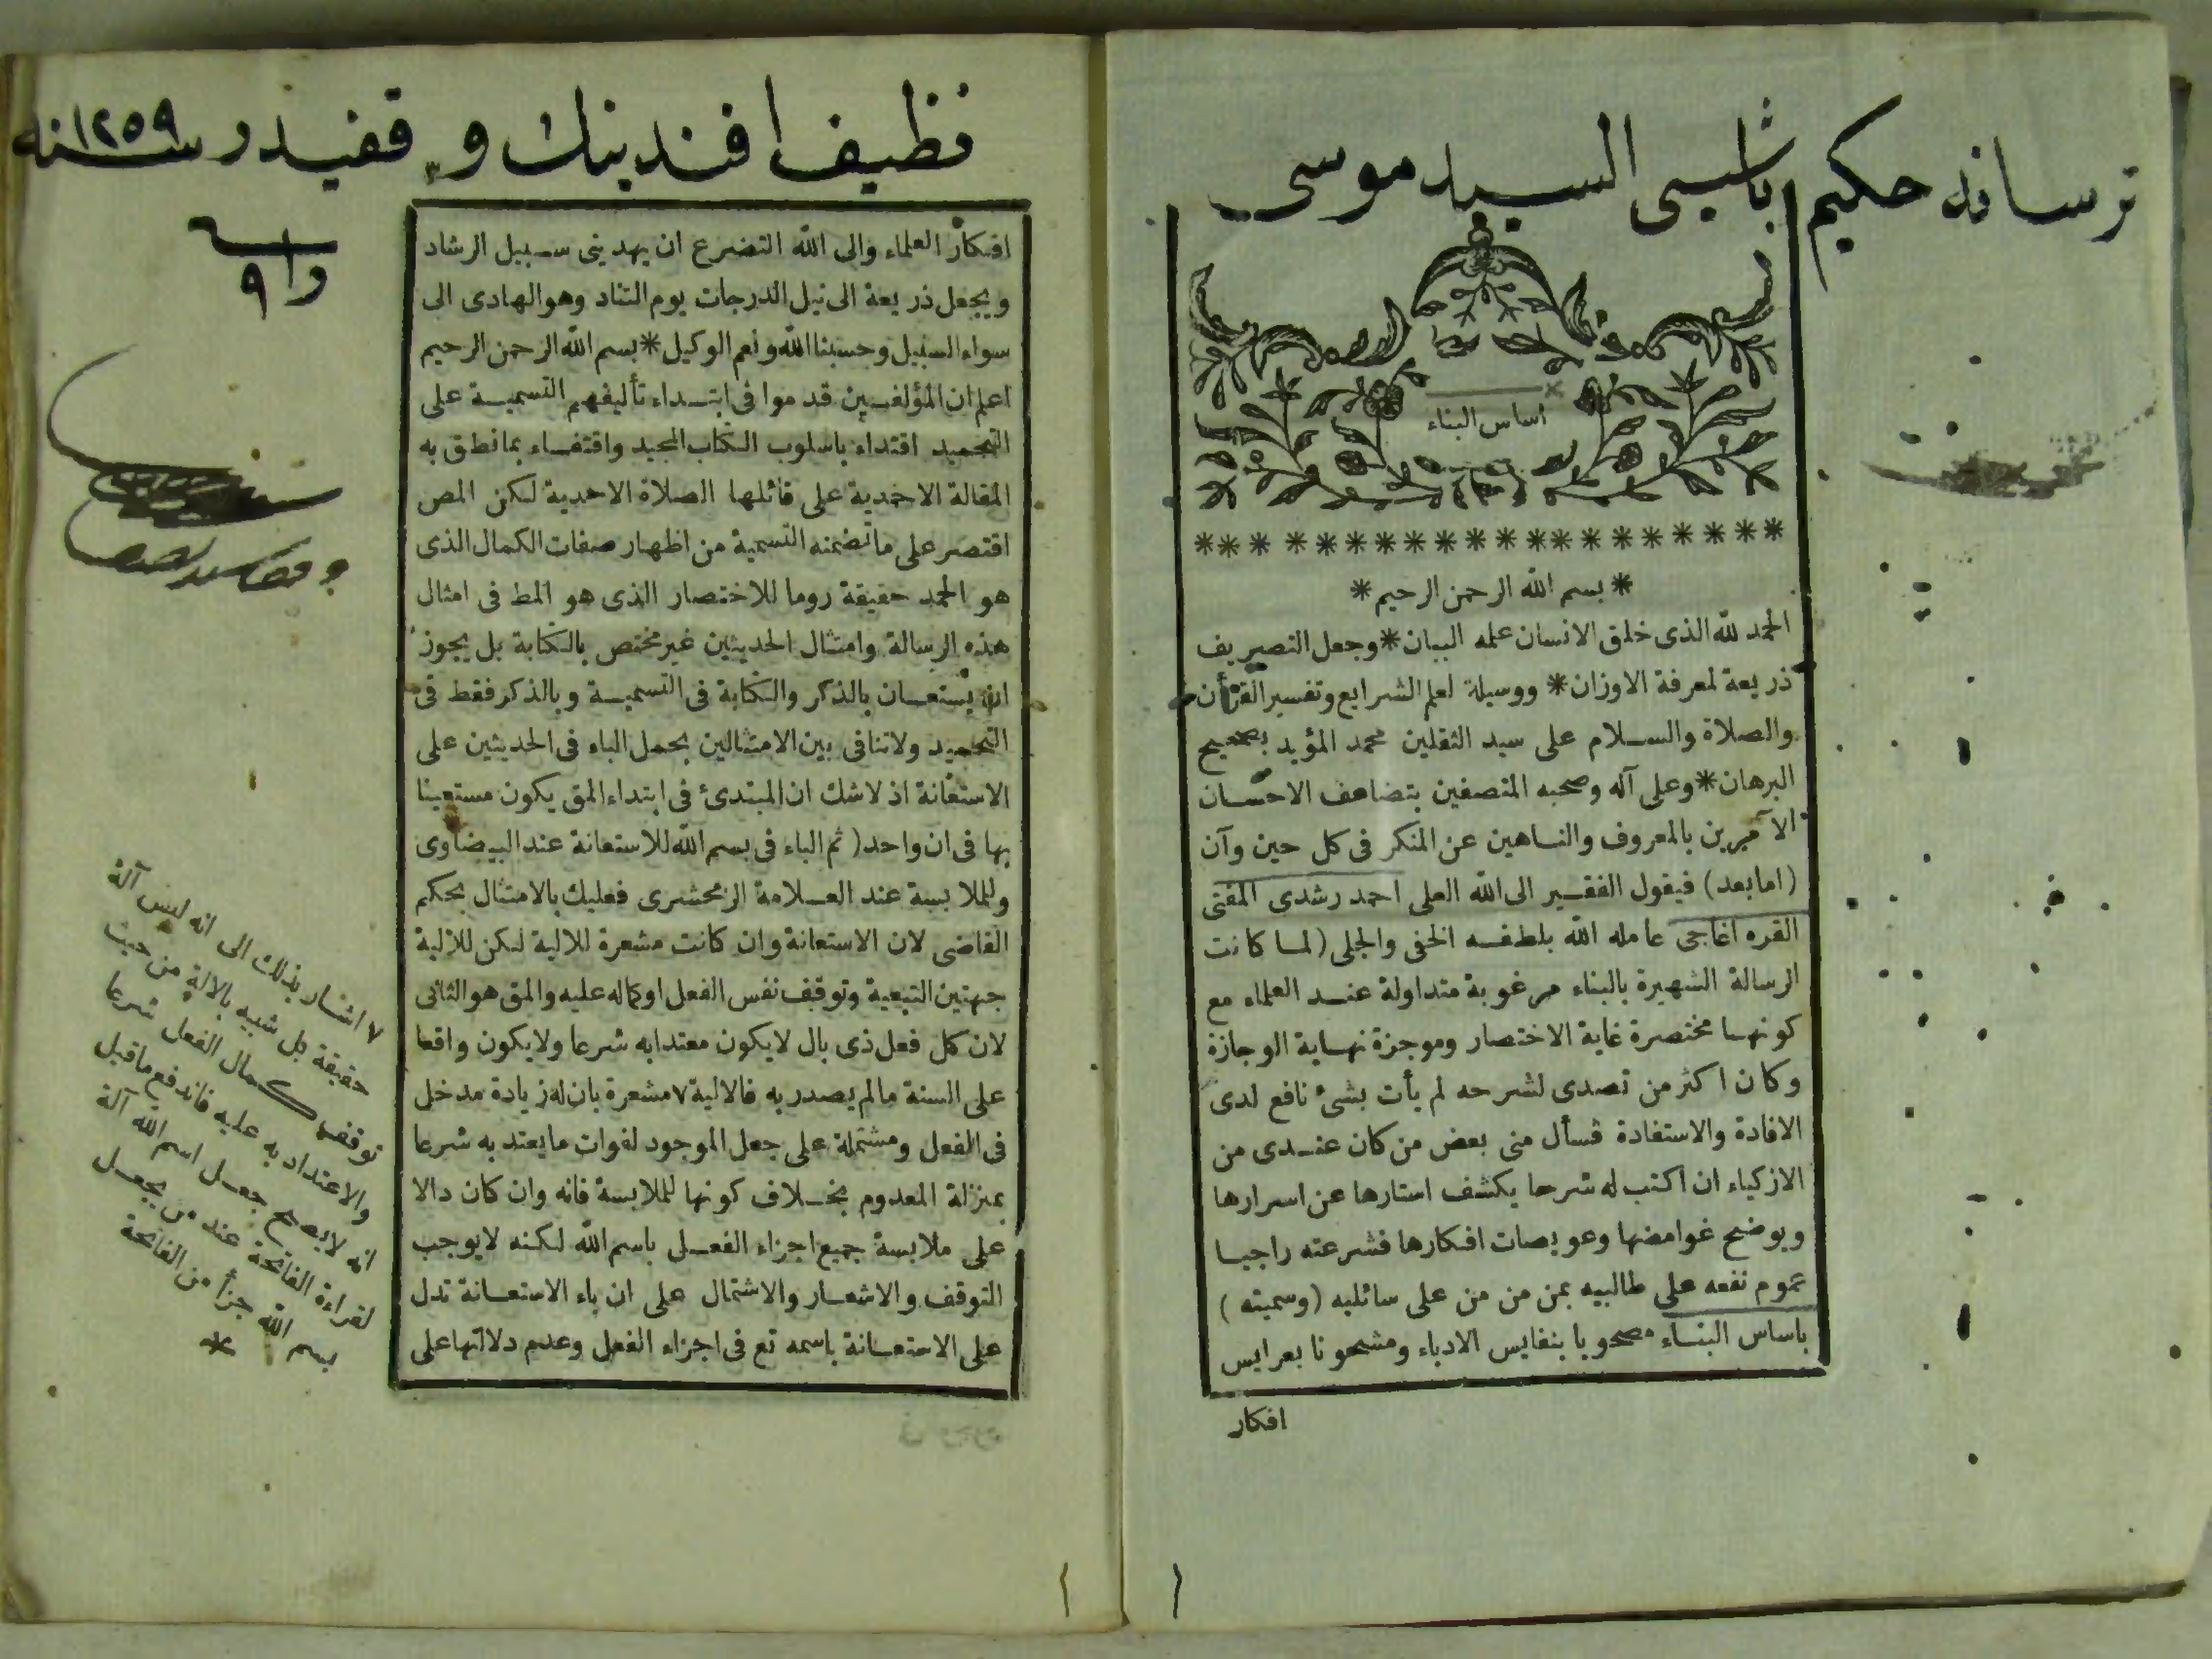 ترسانه حكيم باشيسى السيد موسى
اساس البناء
* بسم الله الرحمن الرحيم *
الحمد لله الذى خلق الانسان علمه البيان * وجعل التصريف
ذريعة لمعرفة الاوزان * ووسيلة لعلم الشرايع وتفسير القرأن
والصلاة والسلام على سيد الثقلين محمد المؤيد بصحيح
البرهان * وعلى آله وصحبه المتصفين بتضاعف الاحسان
الآمرين بالمعروف والناهين عن المنكر فى كل حين وآن
(امابعد) فيقول الفقير الى الله العلى احمد رشدى المفتى
القره اغاجى عامله الله بلطفه الخفى والجلى (لما كانت
الرسالة الشهيرة بالبناء مرغوبة متداولة عند العلماء مع
كونها مختصرة غاية الاختصار وموجزة نهاية الوجازة
وكان اكثر من تصدى لشرحه لم يأت بشئ نافع لدى
الافادة والاستفادة فسأل منى بعض من كان عندى من
الازكياء ان اكتب له شرحا يكشف استارها عن اسرارها
ويوضح غوامضها وعويصات افكارها فشرعته راجيا
عموم نفعه على طالبيه بمن من من على سائليه (وسميته)
باساس البناء مصحوبا بنفايس الادباء ومشحونا بعرايس
افكار
نظيف افندينك وقفيدر سنه ١٢٥٩
افكار العلماء والى الله التضرع ان يهدينى سبيل الرشاد
ويجعل ذريعة الى نيل الدرجات يوم التناد وهو الهادى الى
سواء السبيل وحسبنا الله ونعم الوكيل * بسم الله الرحمن الرحيم
اعلم ان المؤلفين قدموا فى ابتداء تأليفهم التسمية على
التحميد اقتداء باسلوب الكتاب المجيد واقتفاء بما نطق به
المقالة الاحمدية على قائلها الصلاة الاحدية لكن المص
اقتصر على ما تضمنه التسمية من اظهار صفات الكمال الذى
هو الحمد حقيقة روما للاختصار الذى هو المط فى امثال
هذه الرسالة وامتثال الحديثين غير مختص بالكتابة بل يجوز
ان يستعان بالذكر والكتابة فى التسمية وبالذكر فقط فى
التحميد ولا تنافى بين الامتثالين بحمل الباء فى الحديثين على
الاستعانة اذ لا شك ان المبتدئ فى ابتداء المق يكون مستعينا
بها فى ان واحد (ثم الباء فى بسم الله للاستعانة عند البيضاوى
وللملابسة عند العلامة الزمخشرى فعليك بالامتثال بحكم
القاضى لان الاستعانة وان كانت مشعرة للالية لكن للالية
جهتين التبعية وتوقف نفس الفعل اوكماله عليه والمق هو الثانى
لان كل فعل ذى بال لا يكون معتدا به شرعا ولا يكون واقعا
على السنة ما لم يصدر به فالالية ٧ مشعرة بان له زيادة مدخل
فى الفعل ومشتملة على جعل الموجود لفوات ما يعتد به شرعا
بمنزلة المعدوم بخلاف كونها للملابسة فانه وان كان دالا
على ملابسة جميع اجزاء الفعل باسم الله لكنه لا يوجب
التوقف والاشعار والاشتمال على ان باء الاستعانة تدل
على الاستعانة باسمه تع فى اجزاء الفعل وعدم دلالتها على
٧ اشار بذلك الى انه ليس آلة
حقيقة بل شبيه بالالة من حيث
توقف كمال الفعل شرعا
والاعتداد به عليه فاندفع ما قيل
انه لا يصح جعل اسم الله آلة
لقراءة الفاتحة عند من يجعل
بسم الله جزأ من الفاتحة
*